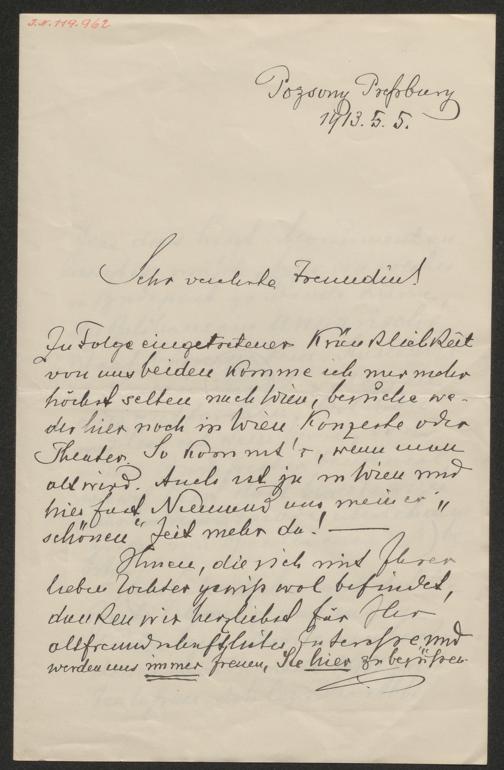 J.N. 119.962
Pozsony Preßburg
1913. 5. 5.
Sehr verehrte Freundin!
Zu Folge eingetretener Kränklichkeit
von uns beiden komme ich nur mehr
höchst selten nach Wien, besuche we-
der hier noch in Wien Konzerte oder
Theater. So kommt's, wenn man
alt wird. Auch ist ja in Wien und
hier fast Niemand aus meiner „
schönen" Zeit mehr da! —
Ihnen, die sich mit Ihrer
lieben Tochter gewiß wol befindet,
danken wir herzlichst für Ihr
altfreundschaftliches Interesse und
werden uns immer freuen, Sie hier zu begrüßen